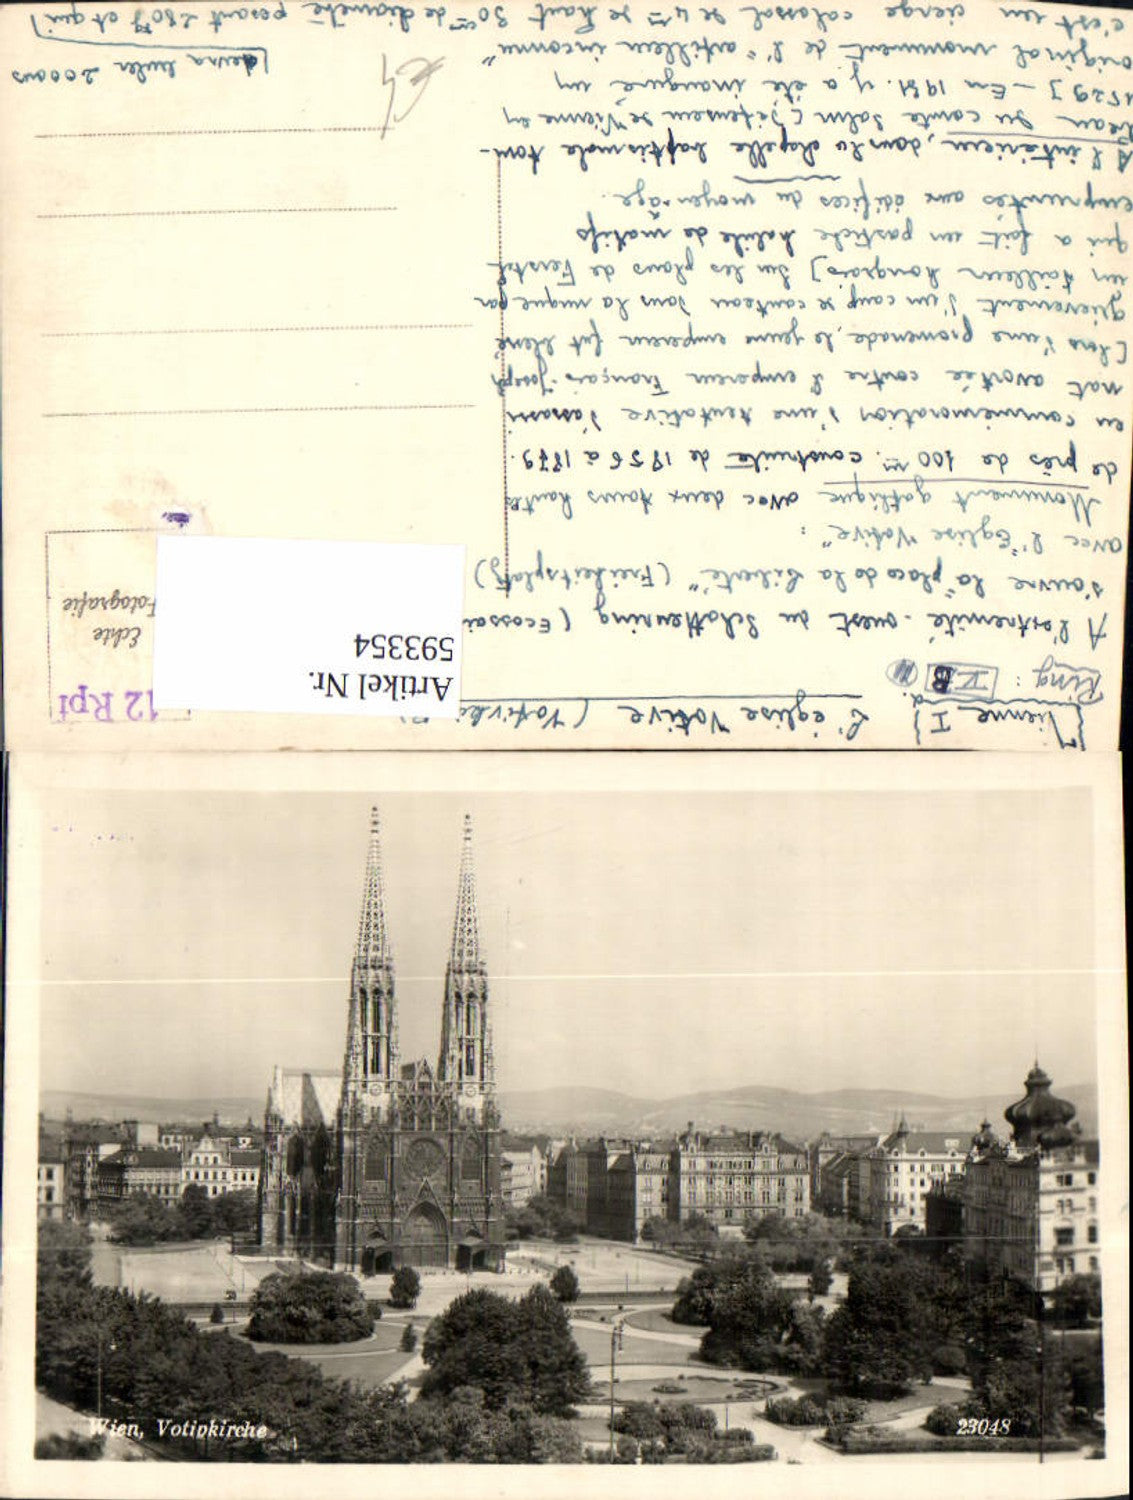 [Vienne I] L'église Votive (Votivki
Ring :
A l'extremité-ouest du Schottenring (Ecossai
s'ouvre la "place de la Liberté" (Freiheitsplatz)
avec l'"Eglise Votive" :
Monument gothique avec deux tours hautes
de près de 100 m. construite de 1856 à 1879.
en commémoration d'une tentative d'assassi
nat avortée contre l'empereur François-Joseph
[lors d'une promenade, le jeune empereur fut blessé
grièvement d'un coup de couteau dans la nuque par
un tailleur hongrois] sur les plans de Ferstel
qui a fait un pastiche habile de motifs
empruntés aux édifices du moyen-âge.
A l'intérieur, dans la chapelle baptismale tom-
beau du comte Salm (défenseur de Vienne en
1529) - En 1931. y a été inauguré un
original monument de l'"artilleur inconnu"
c'est un cierge colossal de 4 m de haut 30 cm de diamètre pesant 280 kg et qui]
[devra bruler 200 ans
€4
12 Rpf
Echte
Fotografie
Artikel Nr.
593354
Wien, Votivkirche
23048